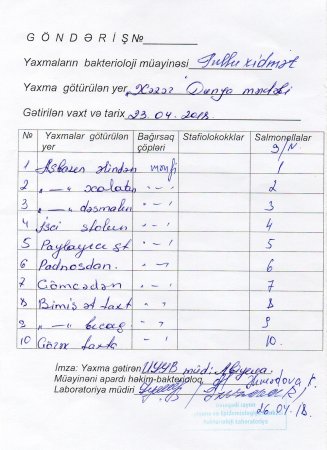 G Ö N D Ə R İ Ş №
Yaxmaların bakterioloji müayinəsi Pullu xidmət
Yaxma götürülən yer Xəzər Dünya məktəbi
Gətirilən vaxt və tarix 23.04.2018
№ Yaxmalar götürülən yer Bağırsaq çöpləri Stafiolokokklar Salmonellalar
S/N
1 Aşbazın əlindən mənfi 1
2 " — " xalatın " — " 2
3 " — " dəsmalın " — " 3
4 İşçi stolun " — " 4
5 Paylayıcı st " — " 5
6 Padnosdan " — " 6
7 Çömçədən " — " 7
8 Bimiş ət taxt " " 8
9 " — " bıçaq " " 9
10 taxta " " 10.
İmza: Yaxma gətirən müdi
Müayinəni apardı həkim-bakterioloq
Laboratoriya müdiri
26.04.18